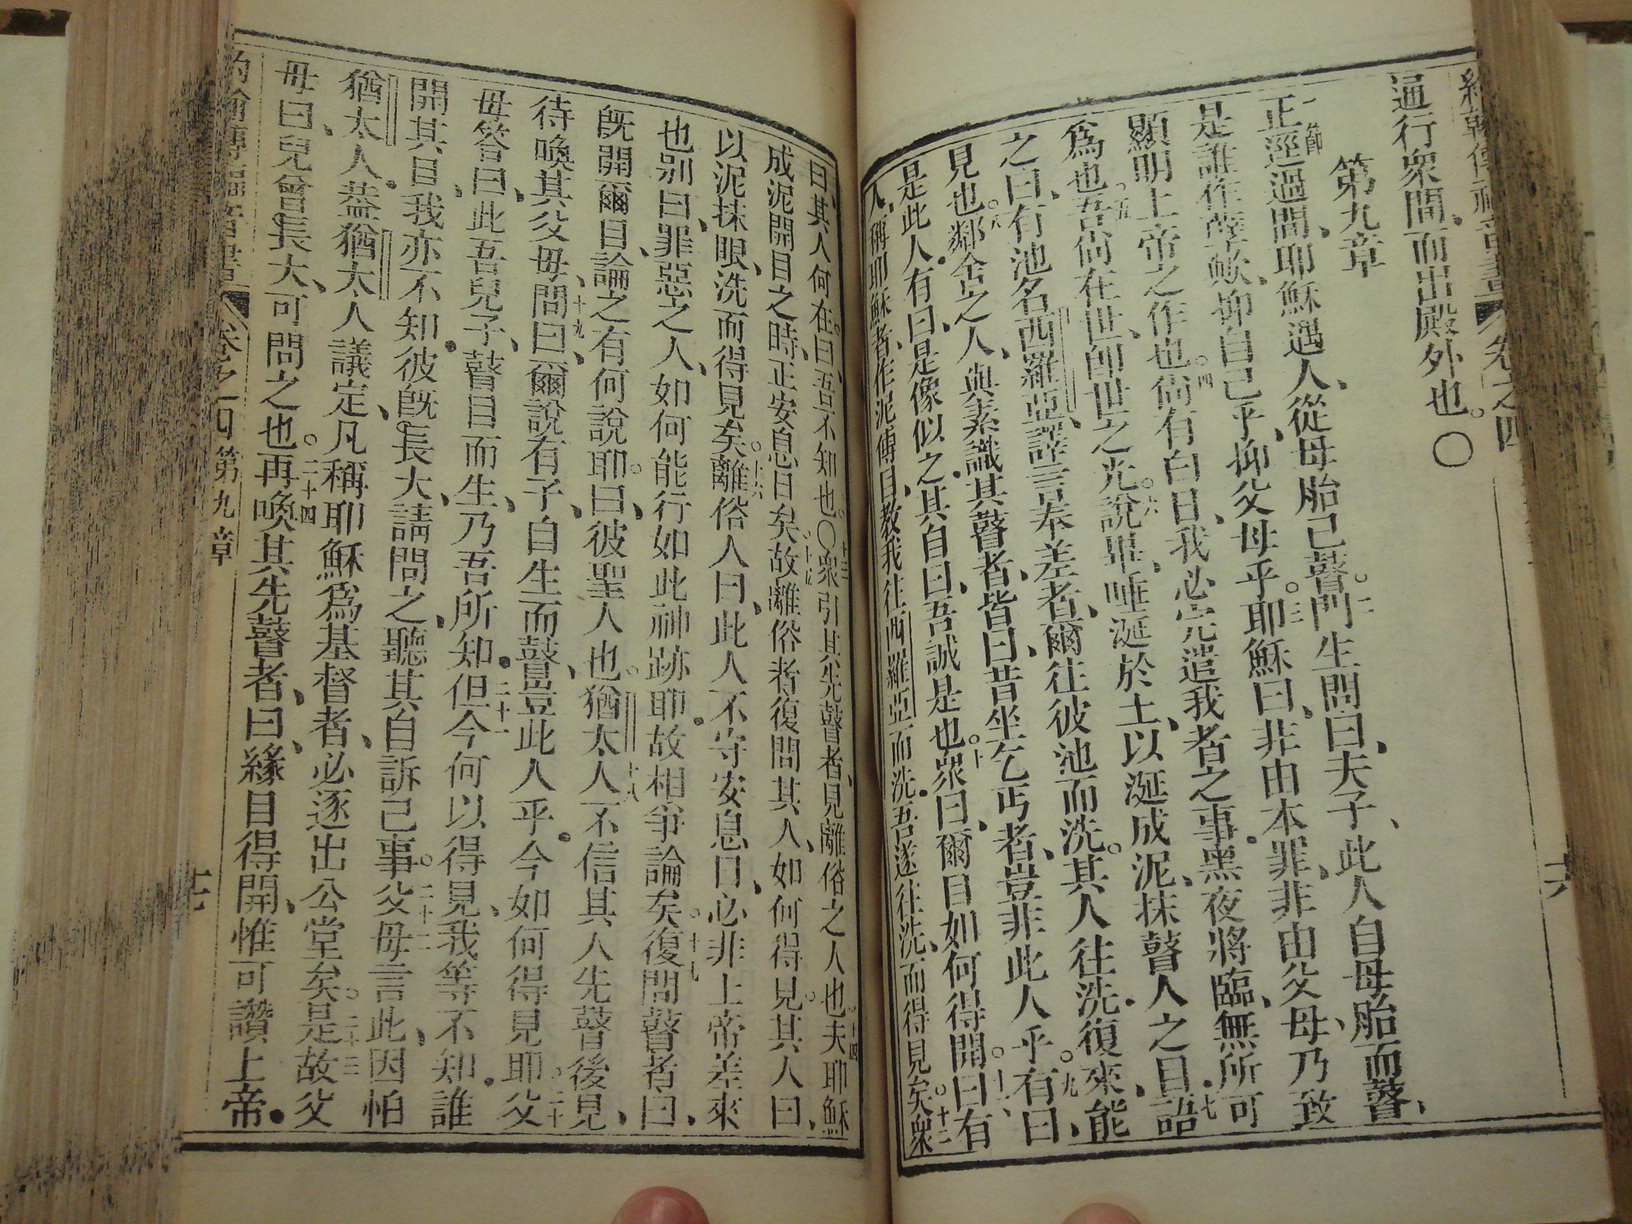 通行眾間、而出殿外也。〇
第九章
一節正逕過間、耶穌遇人、從母胎已瞽。二門生問曰、夫子、此人自母胎而瞽、
是誰作孽歟、抑自己乎、抑父母乎。三耶穌曰、非由本罪、非由父母、乃致
顯明上帝之作也。四尚有白日、我必完遣我者之事、黑夜將臨、無所可
為也。五吾尚在世、即世之光。六說畢、唾涎於土、以涎成泥、抹瞽人之目、七語
之曰、有池名西羅亞、譯言奉差者、爾往彼池而洗。其人往洗、復來能
見也。八鄰舍之人、與素識其瞽者、皆曰、昔坐乞丐者、豈非此人乎。九有曰、
是此人、有曰、是像似之、其自曰、吾誠是也。十眾曰、爾目如何得開。十一曰、有
人稱耶穌者、作泥傅目、教我往西羅亞而洗、吾遂往洗、而得見矣。十二眾
曰、其人何在、曰、吾不知也。〇十三眾引其先瞽者、見離俗之人也。十四夫耶穌
成泥開目之時、正安息日矣。十五故離俗者復問其人、如何得見、其人曰、
以泥抹眼、洗而得見矣。十六離俗人曰、此人不守安息日、必非上帝差來
也、別曰、罪惡之人、如何能行如此神跡耶、故相爭論矣。十七復問瞽者曰、
既開爾目、論之有何說耶。曰、彼聖人也。十八猶太人不信其人先瞽後見、
待喚其父母、十九問曰、爾說有子、自生而瞽、豈此人乎、今如何得見耶。二十父
母答曰、此吾兒子、瞽目而生、乃吾所知、二十一但今何以得見、我等不知、誰
開其目、我亦不知、彼既長大、請問之、聽其自訴己事。二十二父母言此、因怕
猶太人、蓋猶太人議定、凡稱耶穌為基督者、必逐出公堂矣。二十三是故父
母曰、兒曾長大、可問之也。二十四再喚其先瞽者、曰、緣目得開、惟可讚上帝、
約翰傳福音書 卷之四 第九章